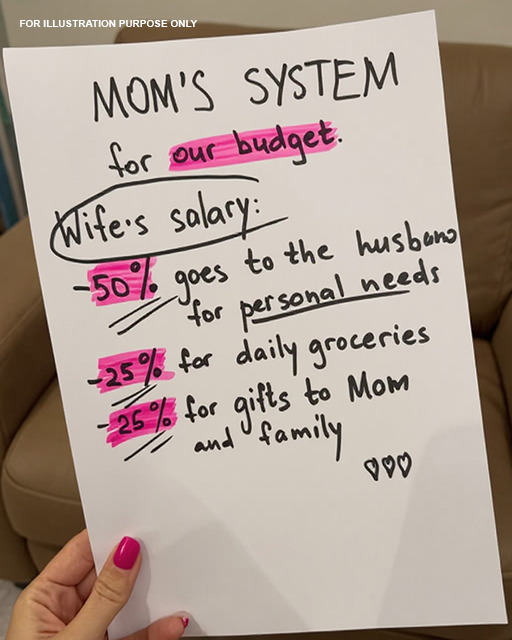 FOR ILLUSTRATION PURPOSE ONLY
MOM'S SYSTEM
for our budget.
Wife's salary:
-50% goes to the husband
for personal needs
-25% for daily groceries
-25% for gifts to Mom
and family
♡♡♡